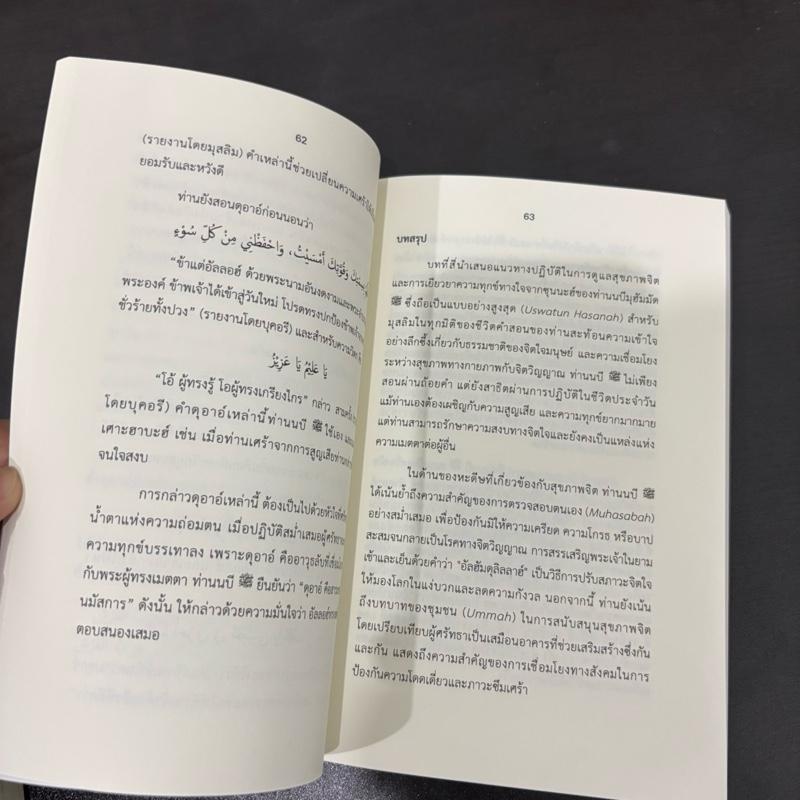 62
(รายงานโดยมุสลิม) คำเหล่านี้ช่วยเปลี่ยนความเศร้า
ยอมรับและหวังดี
ท่านยังสอนดุอาอ์ก่อนนอนว่า
وَقُوَّتِكَ أَمْسَيْتُ، وَاحْفَظْنِي مِنْ كُلِّ سُوْءٍ
“ข้าแต่อัลลอฮ์ ด้วยพระนามอันงดงามและ
พระองค์ ข้าพเจ้าได้เข้าสู่วันใหม่ โปรดทรงปกป้องข้าพเจ้า
ชั่วร้ายทั้งปวง” (รายงานโดยบุคอรี) และสำหรับความ
يَا عَلِيْمُ يَا عَزِيْزُ
“โอ้ ผู้ทรงรู้ โอผู้ทรงเกรียงไกร” กล่าว สามครั้ง
โดยบุคอรี) คำดุอาอ์เหล่านี้ท่านนบี ﷺ ใช้เอง และ
เศาะฮาบะฮ์ เช่น เมื่อท่านเศร้าจากการสูญเสียท่าน
จนใจสงบ
การกล่าวดุอาอ์เหล่านี้ ต้องเป็นไปด้วยหัวใจที่
น้ำตาแห่งความถ่อมตน เมื่อปฏิบัติสม่ำเสมอผู้ศรัทธา
ความทุกข์บรรเทาลง เพราะดุอาอ์ คืออาวุธลับที่เชื่อม
กับพระผู้ทรงเมตตา ท่านนบี ﷺ ยืนยันว่า “ดุอาอ์ คือ
นมัสการ” ดังนั้น ให้กล่าวด้วยความมั่นใจว่า อัลลอฮ์ทรง
ตอบสนองเสมอ
63
บทสรุป
บทที่สี่นำเสนอแนวทางปฏิบัติในการดูแลสุขภาพจิต
และการเยียวยาความทุกข์ทางใจจากซุนนะฮ์ของท่านนบีมุฮัมมัด
ﷺ ซึ่งถือเป็นแบบอย่างสูงสุด (Uswatun Hasanah) สำหรับ
มุสลิมในทุกมิติของชีวิตคำสอนของท่านสะท้อนความเข้าใจ
อย่างลึกซึ้งเกี่ยวกับธรรมชาติของจิตใจมนุษย์ และความเชื่อมโยง
ระหว่างสุขภาพทางกายภาพกับจิตวิญญาณ ท่านนบี ﷺ ไม่เพียง
สอนผ่านถ้อยคำ แต่ยังสาธิตผ่านการปฏิบัติในชีวิตประจำวัน
แม้ท่านเองต้องเผชิญกับความสูญเสีย และความทุกข์ยากมากมาย
แต่ท่านสามารถรักษาความสงบทางจิตใจและยังคงเป็นแหล่งแห่ง
ความเมตตาต่อผู้อื่น
ในด้านของหะดีษที่เกี่ยวข้องกับสุขภาพจิต ท่านนบี ﷺ
ได้เน้นย้ำถึงความสำคัญของการตรวจสอบตนเอง (Muhasabah)
อย่างสม่ำเสมอ เพื่อป้องกันมิให้ความเครียด ความโกรธ หรือบาป
สะสมจนกลายเป็นโรคทางจิตวิญญาณ การสรรเสริญพระเจ้าในยาม
เช้าและเย็นด้วยคำว่า "อัลฮัมดุลิลลาฮ์" เป็นวิธีการปรับสภาวะจิตใจ
ให้มองโลกในแง่บวกและลดความกังวล นอกจากนี้ ท่านยังเน้น
ถึงบทบาทของชุมชน (Ummah) ในการสนับสนุนสุขภาพจิต
โดยเปรียบเทียบผู้ศรัทธาเป็นเสมือนอาคารที่ช่วยเสริมสร้างซึ่งกัน
และกัน แสดงถึงความสำคัญของการเชื่อมโยงทางสังคมในการ
ป้องกันความโดดเดี่ยวและภาวะซึมเศร้า